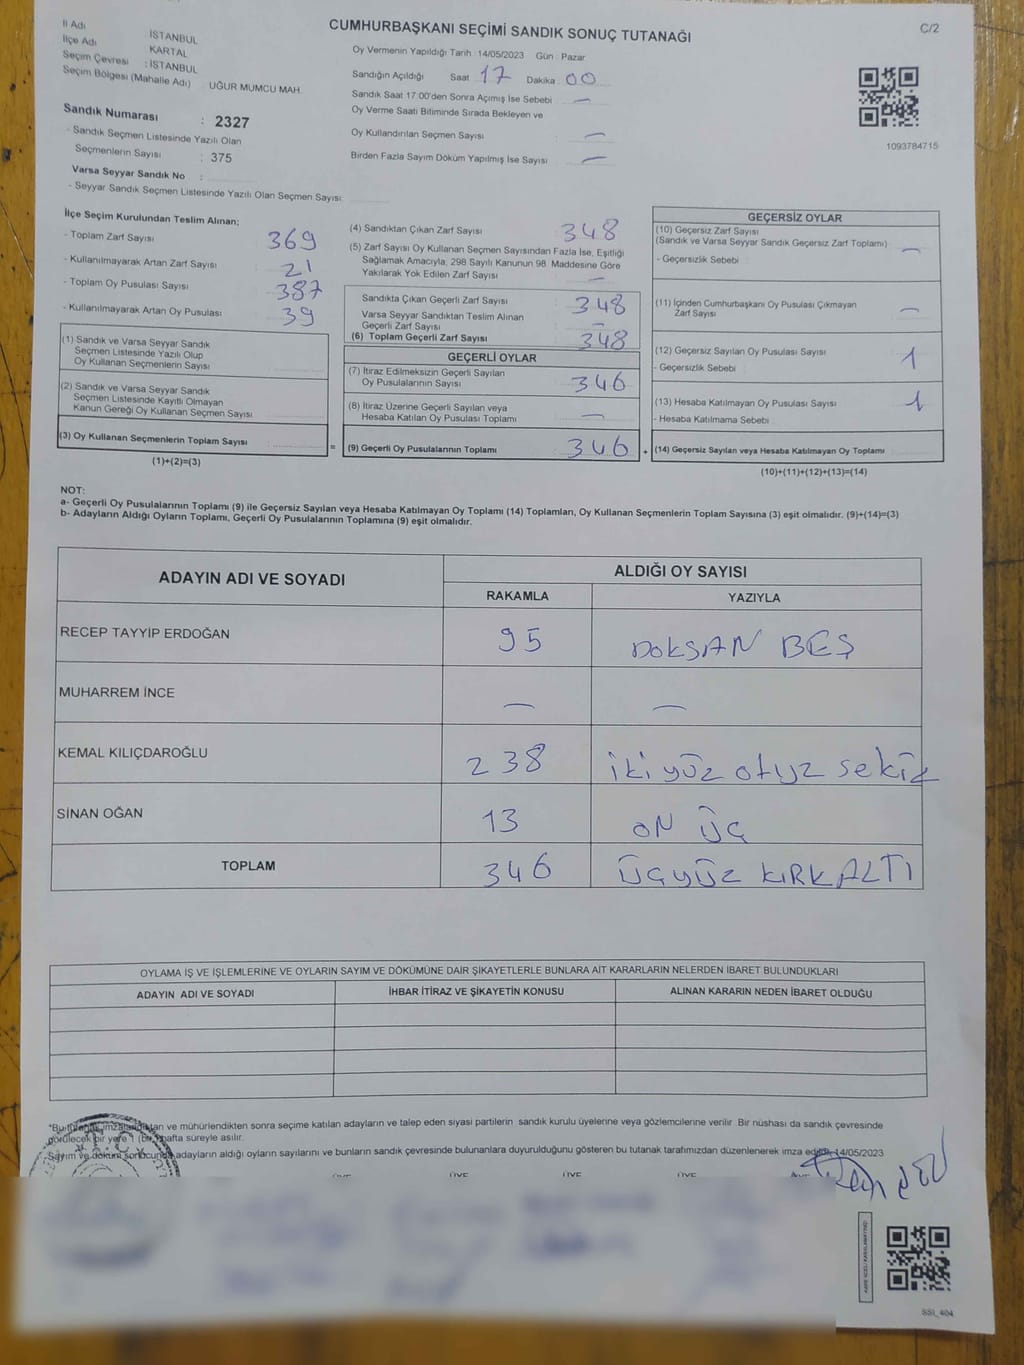 C/2
CUMHURBAŞKANI SEÇİMİ SANDIK SONUÇ TUTANAĞI
İl Adı : İSTANBUL
İlçe Adı : KARTAL
Seçim Çevresi : İSTANBUL
Seçim Bölgesi (Mahalle Adı) UĞUR MUMCU MAH.
Sandık Numarası : 2327
- Sandık Seçmen Listesinde Yazılı Olan
Seçmenlerin Sayısı : 375
Varsa Seyyar Sandık No :
- Seyyar Sandık Seçmen Listesinde Yazılı Olan Seçmen Sayısı:
Oy Vermenin Yapıldığı Tarih: 14/05/2023 Gün : Pazar
Sandığın Açıldığı Saat 17 Dakika 00
Sandık Saat 17:00'den Sonra Açımış İse Sebebi —
Oy Verme Saati Bitiminde Sırada Bekleyen ve
Oy Kullandırılan Seçmen Sayısı : —
Birden Fazla Sayım Döküm Yapılmış İse Sayısı : —
1093784715
İlçe Seçim Kurulundan Teslim Alınan;
- Toplam Zarf Sayısı : 369
- Kullanılmayarak Artan Zarf Sayısı : 21
- Toplam Oy Pusulası Sayısı : 387
- Kullanılmayarak Artan Oy Pusulası : 39
(1) Sandık ve Varsa Seyyar Sandık
Seçmen Listesinde Yazılı Olup
Oy Kullanan Seçmenlerin Sayısı :
(2) Sandık ve Varsa Seyyar Sandık
Seçmen Listesinde Kayıtlı Olmayan
Kanun Gereği Oy Kullanan Seçmen Sayısı
(3) Oy Kullanan Seçmenlerin Toplam Sayısı :
(1)+(2)=(3)
=
(4) Sandıktan Çıkan Zarf Sayısı : 348
(5) Zarf Sayısı Oy Kullanan Seçmen Sayısından Fazla İse, Eşitliği
Sağlamak Amacıyla, 298 Sayılı Kanunun 98. Maddesine Göre
Yakılarak Yok Edilen Zarf Sayısı : —
Sandıkta Çıkan Geçerli Zarf Sayısı : 348
Varsa Seyyar Sandıktan Teslim Alınan
Geçerli Zarf Sayısı : —
(6) Toplam Geçerli Zarf Sayısı : 348
GEÇERLİ OYLAR
(7) İtiraz Edilmeksizin Geçerli Sayılan
Oy Pusulalarının Sayısı : 346
(8) İtiraz Üzerine Geçerli Sayılan veya
Hesaba Katılan Oy Pusulası Toplamı : —
(9) Geçerli Oy Pusulalarının Toplamı : 346
+
GEÇERSİZ OYLAR
(10) Geçersiz Zarf Sayısı
(Sandık ve Varsa Seyyar Sandık Geçersiz Zarf Toplamı) : —
- Geçersizlik Sebebi
(11) İçinden Cumhurbaşkanı Oy Pusulası Çıkmayan
Zarf Sayısı : —
(12) Geçersiz Sayılan Oy Pusulası Sayısı : 1
- Geçersizlik Sebebi
(13) Hesaba Katılmayan Oy Pusulası Sayısı : 1
- Hesaba Katılmama Sebebi :
(14) Geçersiz Sayılan veya Hesaba Katılmayan Oy Toplamı :
(10)+(11)+(12)+(13)=(14)
NOT:
a- Geçerli Oy Pusulalarının Toplamı (9) ile Geçersiz Sayılan veya Hesaba Katılmayan Oy Toplamı (14) Toplamları, Oy Kullanan Seçmenlerin Toplam Sayısına (3) eşit olmalıdır. (9)+(14)=(3)
b- Adayların Aldığı Oyların Toplamı, Geçerli Oy Pusulalarının Toplamına (9) eşit olmalıdır.
ADAYIN ADI VE SOYADI ALDIĞI OY SAYISI
RAKAMLA YAZIYLA
RECEP TAYYİP ERDOĞAN 95 DOKSAN BEŞ
MUHARREM İNCE — —
KEMAL KILIÇDAROĞLU 238 iki yüz otuz sekiz
SİNAN OĞAN 13 ON ÜÇ
TOPLAM 346 ÜÇYÜZ KIRKALTI
OYLAMA İŞ VE İŞLEMLERİNE VE OYLARIN SAYIM VE DÖKÜMÜNE DAİR ŞİKAYETLERLE BUNLARA AİT KARARLARIN NELERDEN İBARET BULUNDUKLARI
ADAYIN ADI VE SOYADI İHBAR İTİRAZ VE ŞİKAYETİN KONUSU ALINAN KARARIN NEDEN İBARET OLDUĞU
ve mühürlendikten sonra seçime katılan adayların ve talep eden siyasi partilerin sandık kurulu üyelerine veya gözlemcilerine verilir. Bir nüshası da sandık çevresinde
görülecek bir yere 1 (bir) hafta süreyle asılır.
Sayım ve döküm sonucunda adayların aldığı oyların sayılarını ve bunların sandık çevresinde bulunanlara duyurulduğunu gösteren bu tutanak tarafımızdan düzenlenerek imza edildi. 14/05/2023
ÜYE ÜYE ÜYE ÜYE
SSİ_404